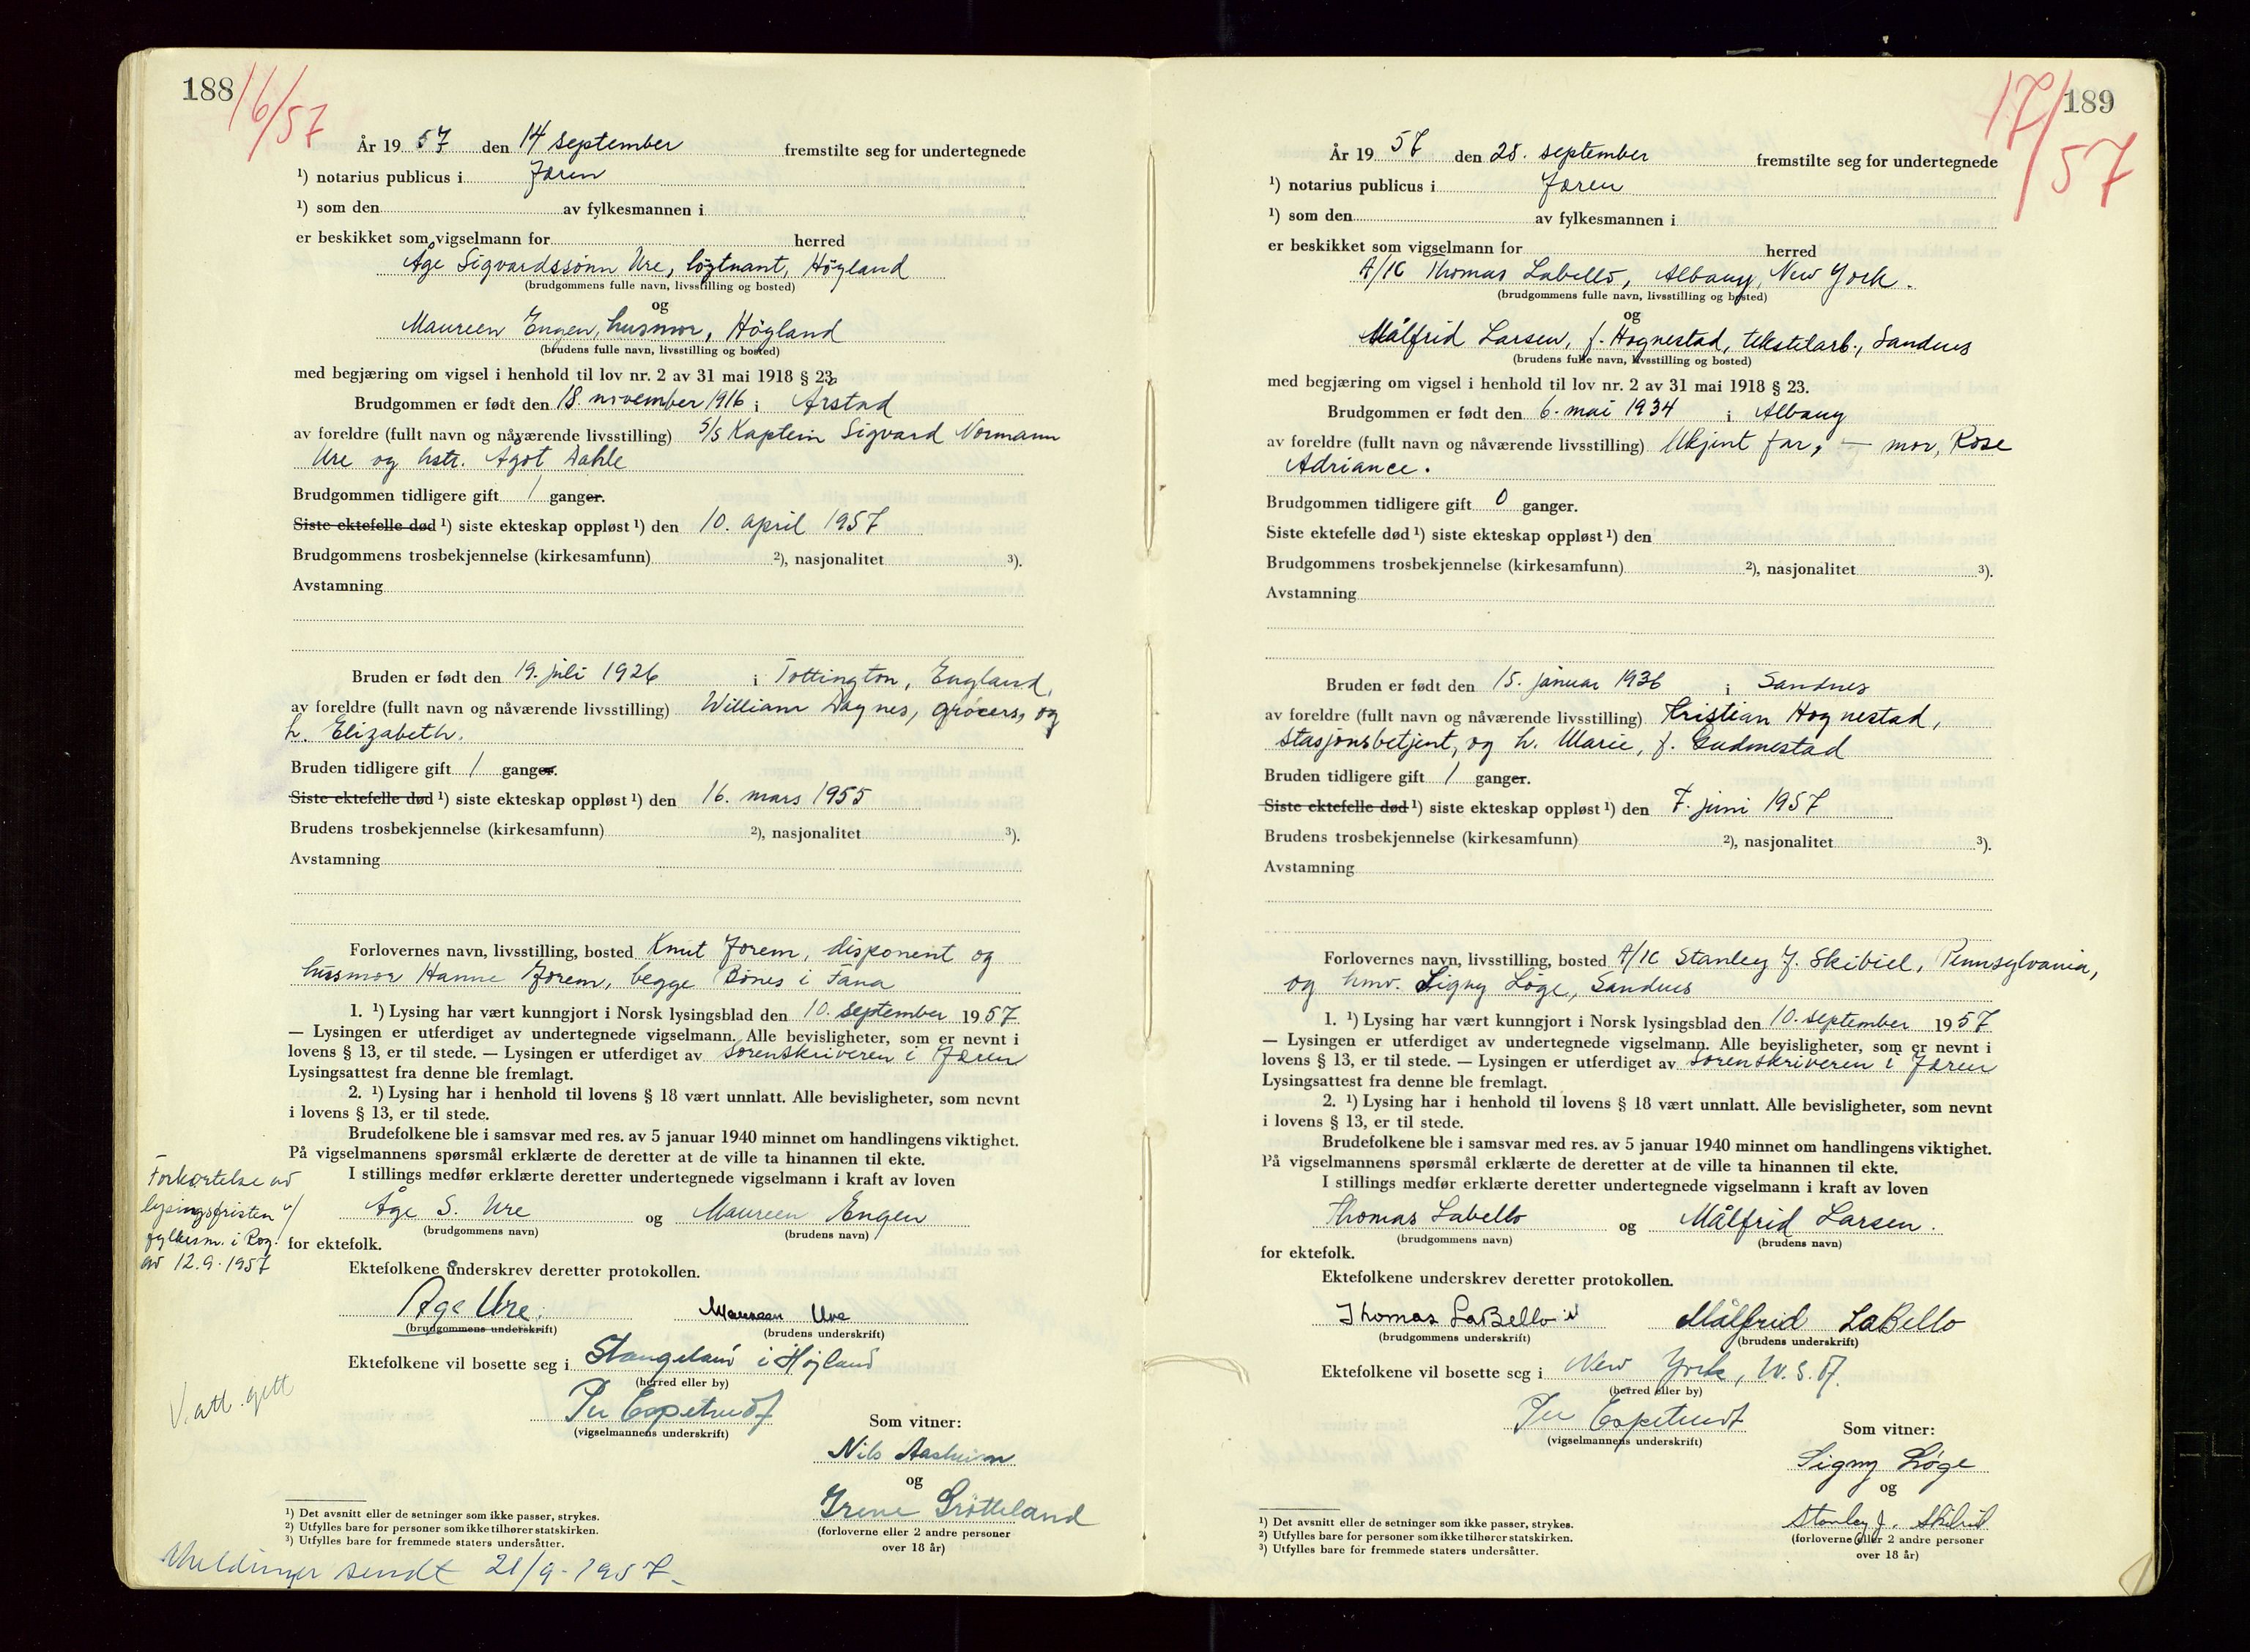 188
16/57
År 1957 den 14 september fremstilte seg for undertegnede
¹) notarius publicus i Jæren
¹) som den av fylkesmannen i
er beskikket som vigselmann for herred
Åge Sigvardssønn Ure, löytnant, Höyland
(brudgommens fulle navn, livsstilling og bosted)
og
Maureen Engen, husmor, Höyland
(brudens fulle navn, livsstilling og bosted)
med begjæring om vigsel i henhold til lov nr. 2 av 31 mai 1918 § 23.
Brudgommen er født den 18. november 1916 i Årstad
av foreldre (fullt navn og nåværende livsstilling) S/S Kaptein Sigvard Normann
Ure og hstr. Ågot Dahle
Brudgommen tidligere gift 1 ganger.
Siste ektefelle død ¹) siste ekteskap oppløst ¹) den 10. april 1957
Brudgommens trosbekjennelse (kirkesamfunn) ²), nasjonalitet ³).
Avstamning
Bruden er født den 19. juli 1926 i Tottington, England,
av foreldre (fullt navn og nåværende livsstilling) William Daynes, grocers, og
h. Elizabeth.
Bruden tidligere gift 1 ganger.
Siste ektefelle død ¹) siste ekteskap oppløst ¹) den 16. mars 1955
Brudens trosbekjennelse (kirkesamfunn) ²), nasjonalitet ³).
Avstamning
Forlovernes navn, livsstilling, bosted Knut Jorem, disponent og
husmor Hanne Jorem, begge Bönes i Fana
1. ¹) Lysing har vært kunngjort i Norsk lysingsblad den 10. september 1957
— Lysingen er utferdiget av undertegnede vigselmann. Alle bevisligheter, som er nevnt i
lovens § 13, er til stede. — Lysingen er utferdiget av sorenskriveren i Jæren
Lysingsattest fra denne ble fremlagt.
2. ¹) Lysing har i henhold til lovens § 18 vært unnlatt. Alle bevisligheter, som nevnt
i lovens § 13, er til stede.
Brudefolkene ble i samsvar med res. av 5 januar 1940 minnet om handlingens viktighet.
På vigselmannens spørsmål erklærte de deretter at de ville ta hinannen til ekte.
I stillings medfør erklærte deretter undertegnede vigselmann i kraft av loven
Forkortelse av
lysingsfristen v/
fylkesm. i Rog.
av 12.9.1957
Åge S. Ure og Maureen Engen
(brudgommens navn) (brudens navn)
for ektefolk.
Ektefolkene underskrev deretter protokollen.
Åge Ure. Maureen Ure
(brudgommens underskrift) (brudens underskrift)
Ektefolkene vil bosette seg i Stangeland i Høyland
(herred eller by)
V. att. gitt
Per Espetvedt
(vigselmannens underskrift)
Som vitner:
Nils Aasheim
og
Irene Grötteland
(forloverne eller 2 andre personer
over 18 år)
¹) Det avsnitt eller de setninger som ikke passer, strykes.
²) Utfylles bare for personer som ikke tilhører statskirken.
³) Utfylles bare for fremmede staters undersåtter.
Meldinger sendt 21/9-1957.
189
17/57
År 1957 den 28. september fremstilte seg for undertegnede
¹) notarius publicus i Jæren
¹) som den av fylkesmannen i
er beskikket som vigselmann for herred
A/1C Thomas Labello, Albany, New York.
(brudgommens fulle navn, livsstilling og bosted)
og
Målfrid Larsen, f. Hognestad, tekstilarb., Sandnes
(brudens fulle navn, livsstilling og bosted)
med begjæring om vigsel i henhold til lov nr. 2 av 31 mai 1918 § 23.
Brudgommen er født den 6. mai 1934 i Albany
av foreldre (fullt navn og nåværende livsstilling) Ukjent far, — mor, Rose
Adriance.
Brudgommen tidligere gift 0 ganger.
Siste ektefelle død ¹) siste ekteskap oppløst ¹) den
Brudgommens trosbekjennelse (kirkesamfunn) ²), nasjonalitet ³).
Avstamning
Bruden er født den 15. januar 1936 i Sandnes
av foreldre (fullt navn og nåværende livsstilling) Kristian Hognestad,
stasjonsbetjent, og h. Marie, f. Gudmestad
Bruden tidligere gift 1 ganger.
Siste ektefelle død ¹) siste ekteskap oppløst ¹) den 7. juni 1957
Brudens trosbekjennelse (kirkesamfunn) ²), nasjonalitet ³).
Avstamning
Forlovernes navn, livsstilling, bosted A/1C Stanley J. Skibiel, Pennsylvania,
og hmr. Signy Löge, Sandnes
1. ¹) Lysing har vært kunngjort i Norsk lysingsblad den 10. september 1957
— Lysingen er utferdiget av undertegnede vigselmann. Alle bevisligheter, som er nevnt i
lovens § 13, er til stede. — Lysingen er utferdiget av sorenskriveren i Jæren
Lysingsattest fra denne ble fremlagt.
2. ¹) Lysing har i henhold til lovens § 18 vært unnlatt. Alle bevisligheter, som nevnt
i lovens § 13, er til stede.
Brudefolkene ble i samsvar med res. av 5 januar 1940 minnet om handlingens viktighet.
På vigselmannens spørsmål erklærte de deretter at de ville ta hinannen til ekte.
I stillings medfør erklærte deretter undertegnede vigselmann i kraft av loven
Thomas Labello og Målfrid Larsen.
(brudgommens navn) (brudens navn)
for ektefolk.
Ektefolkene underskrev deretter protokollen.
Thomas LaBello Målfrid LaBello
(brudgommens underskrift) (brudens underskrift)
Ektefolkene vil bosette seg i New York, U.S.A.
(herred eller by)
Per Espetvedt
(vigselmannens underskrift)
Som vitner:
Signy Løge
og
Stanley J. Skibiel
(forloverne eller 2 andre personer
over 18 år)
¹) Det avsnitt eller de setninger som ikke passer, strykes.
²) Utfylles bare for personer som ikke tilhører statskirken.
³) Utfylles bare for fremmede staters undersåtter.